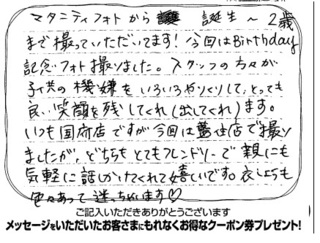 マタニティフォトから 誕生〜2歳
まで撮っていただいてます！今回はBirthday
記念フォト撮りました。スタッフの方々が
子供の機嫌をいろいろやとりして、とっても
良い笑顔を残してくれ（出してくれ）ます。
いつも国府店ですが今回は住店で撮り
ましたが、どちらもとてもフレンドリーで親にも
気軽に話しかけてくれて嬉しいです。衣しょうも
色々あって迷っちゃいます♡
ご記入いただきありがとうございます
メッセージをいただいたお客さまにもれなくお得なクーポン券プレゼント！